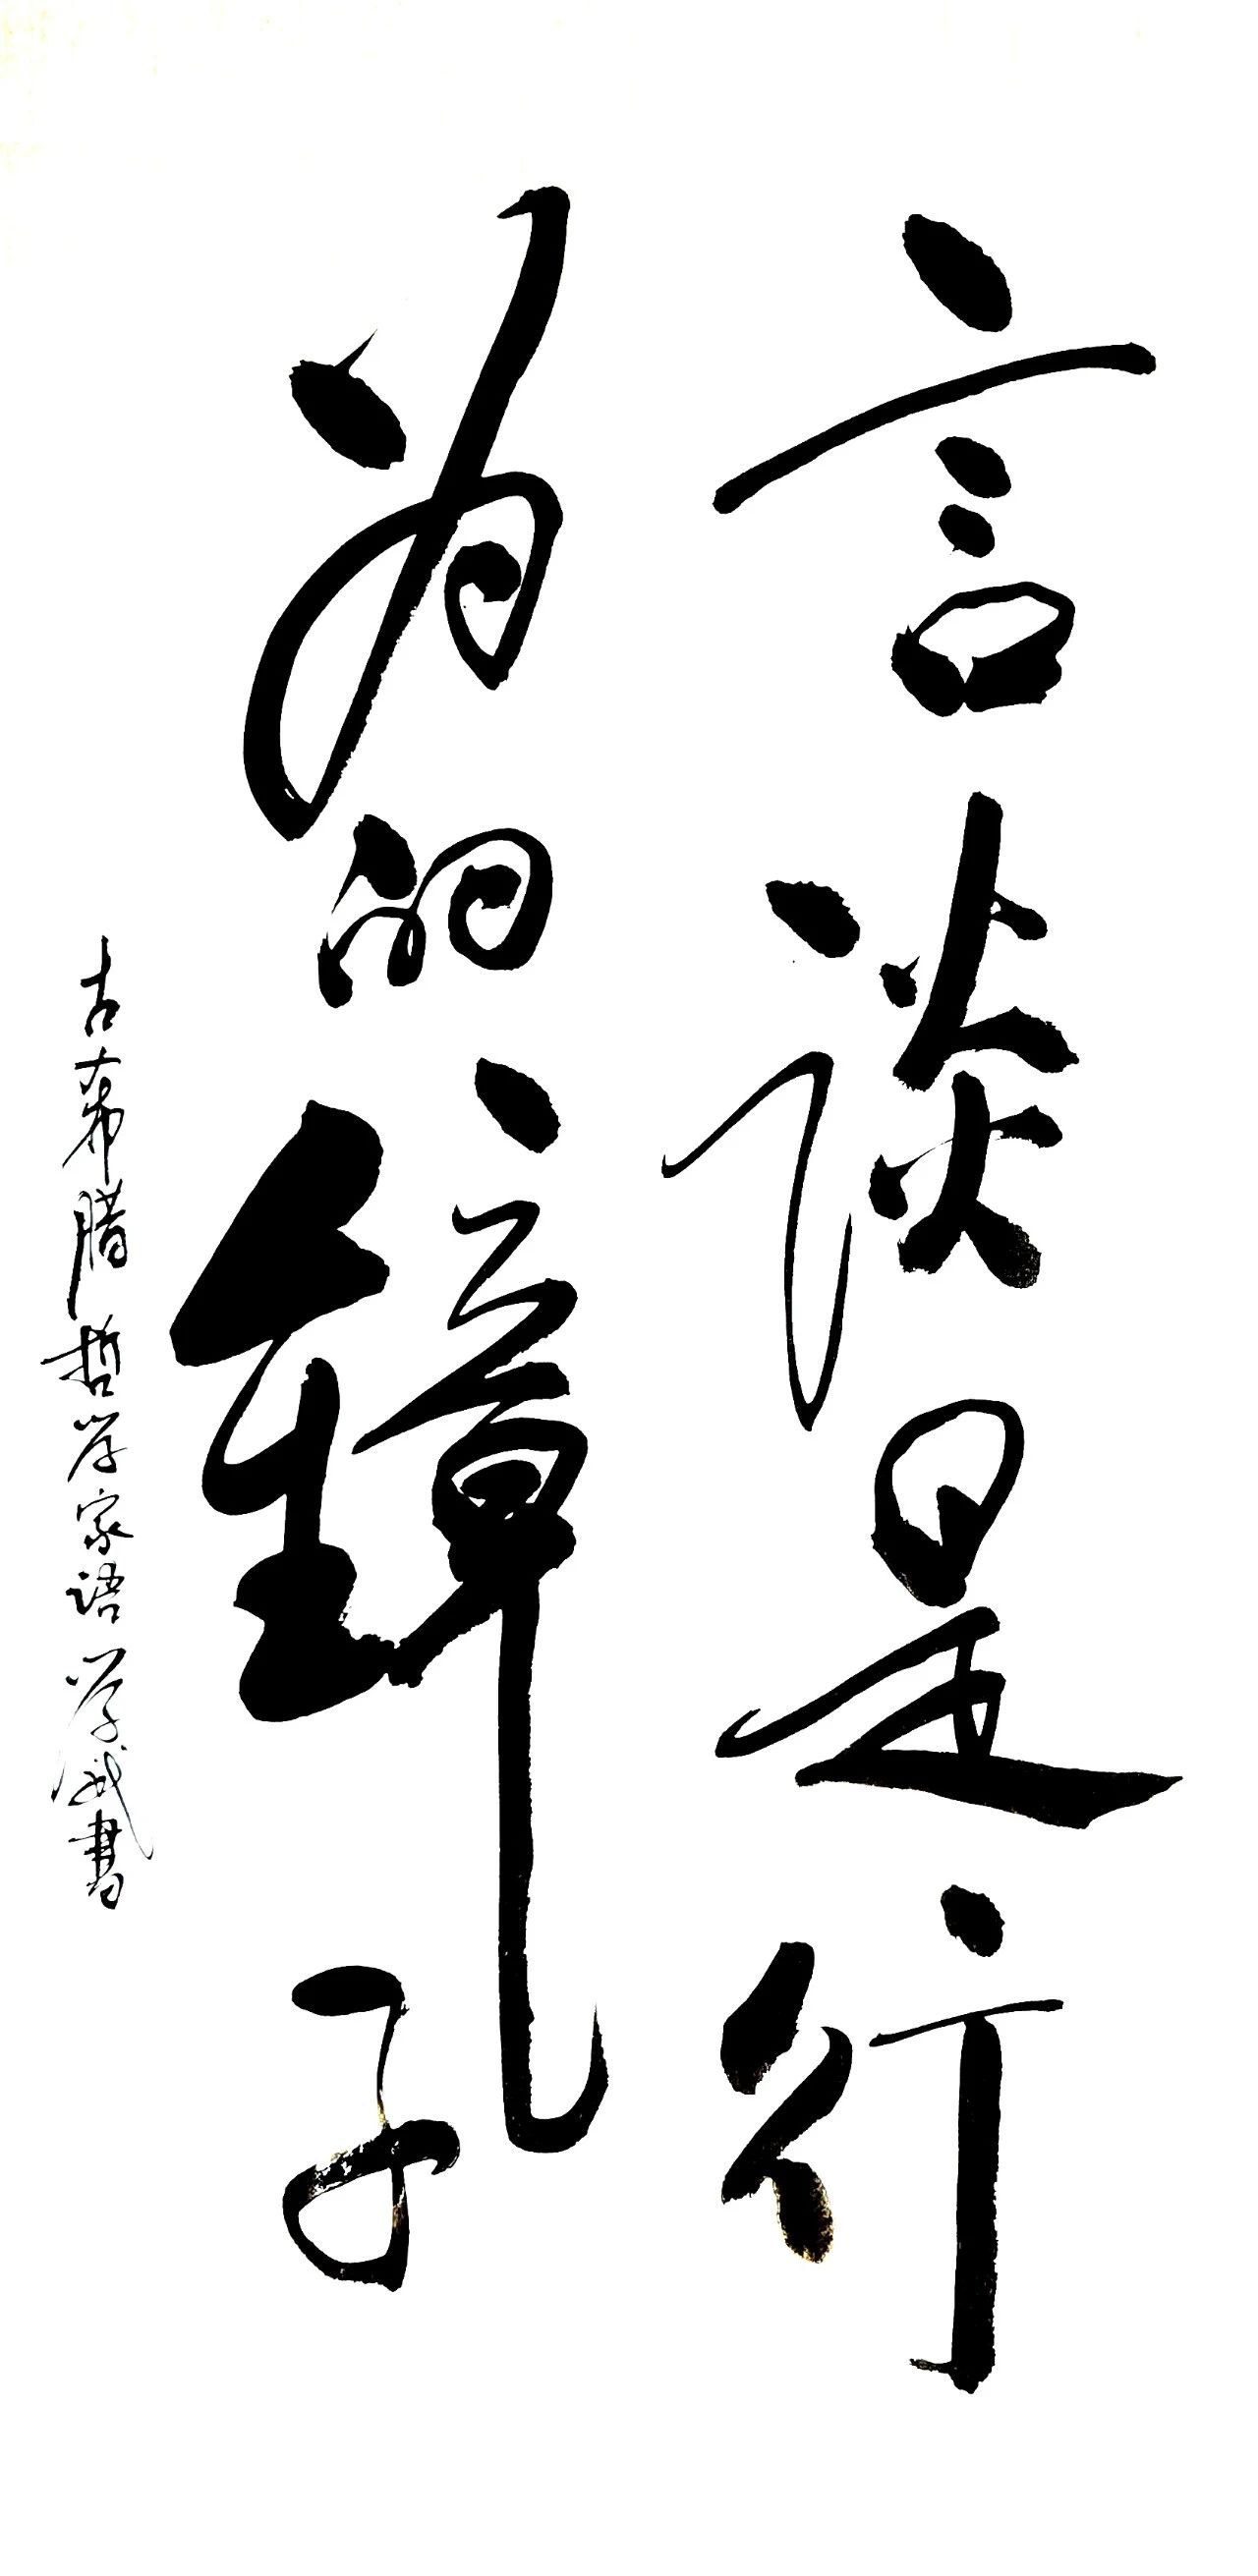 言谈是行
为的鏡子
古希腊哲学家语 学威書